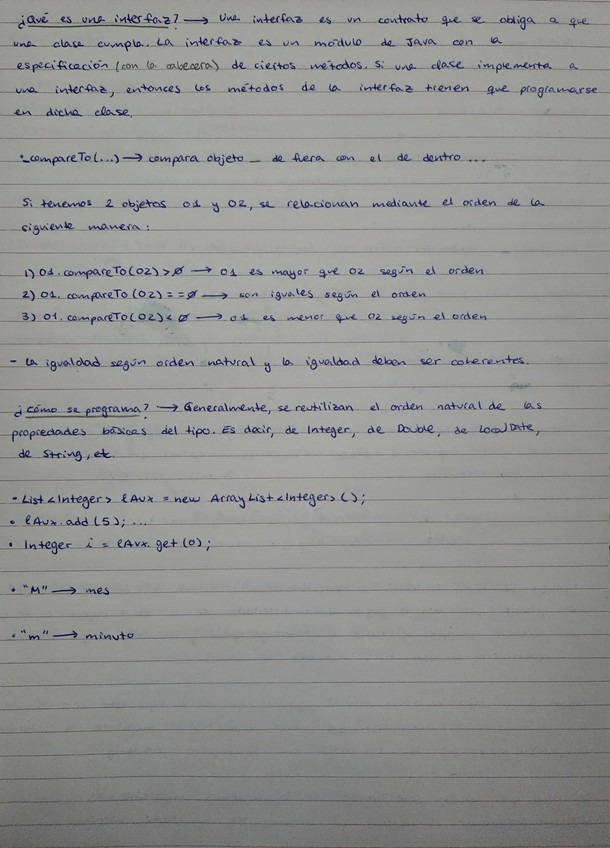 ¿Qué es una interfaz? → Una interfaz es un contrato que se obliga a que
una clase cumpla. La interfaz es un módulo de Java con la
especificación (con la cabecera) de ciertos métodos. Si una clase implementa a
una interfaz, entonces los métodos de la interfaz tienen que programarse
en dicha clase.
·_compareTo(...) → compara objeto _ de fuera con el de dentro...
Si tenemos 2 objetos o1 y o2, se relacionan mediante el orden de la
siguiente manera:
1) o1.compareTo(o2)>0 → o1 es mayor que o2 según el orden
2) o1.compareTo(o2)==0 → son iguales según el orden
3) o1.compareTo(o2)<0 → o1 es menor que o2 según el orden
- La igualdad según orden natural y la igualdad deben ser coherentes.
¿Cómo se programa? → Generalmente, se reutilizan el orden natural de las
propiedades básicas del tipo. Es decir, de Integer, de Double, de LocalDate,
de String, etc.
• List<Integer> lAux = new ArrayList<Integer>();
• lAux.add(5); ...
• Integer i = lAux.get(0);
• "M" → mes
• "m" → minuto